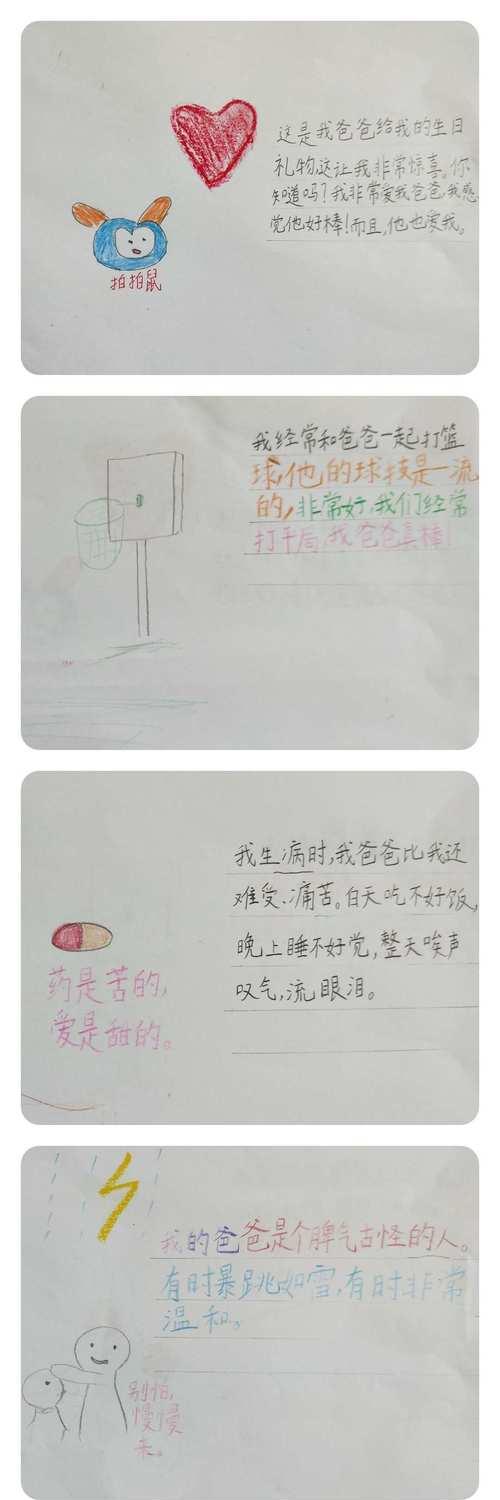 这是我爸爸给我的生日
礼物这让我非常惊喜。你
知道吗?我非常爱我爸爸,我感
觉他好棒!而且,他也爱我。
拍拍鼠
我经常和爸爸一起打篮
球,他的球技是一流
的,非常好,我们经常
打平局,我爸爸真棒!
我生病时,我爸爸比我还
难受、痛苦。白天吃不好饭,
晚上睡不好觉,整天唉声
叹气,流眼泪。
药是苦的,
爱是甜的。
我的爸爸是个脾气古怪的人。
有时暴跳如雪,有时非常
温和。
别怕,
慢慢
来。